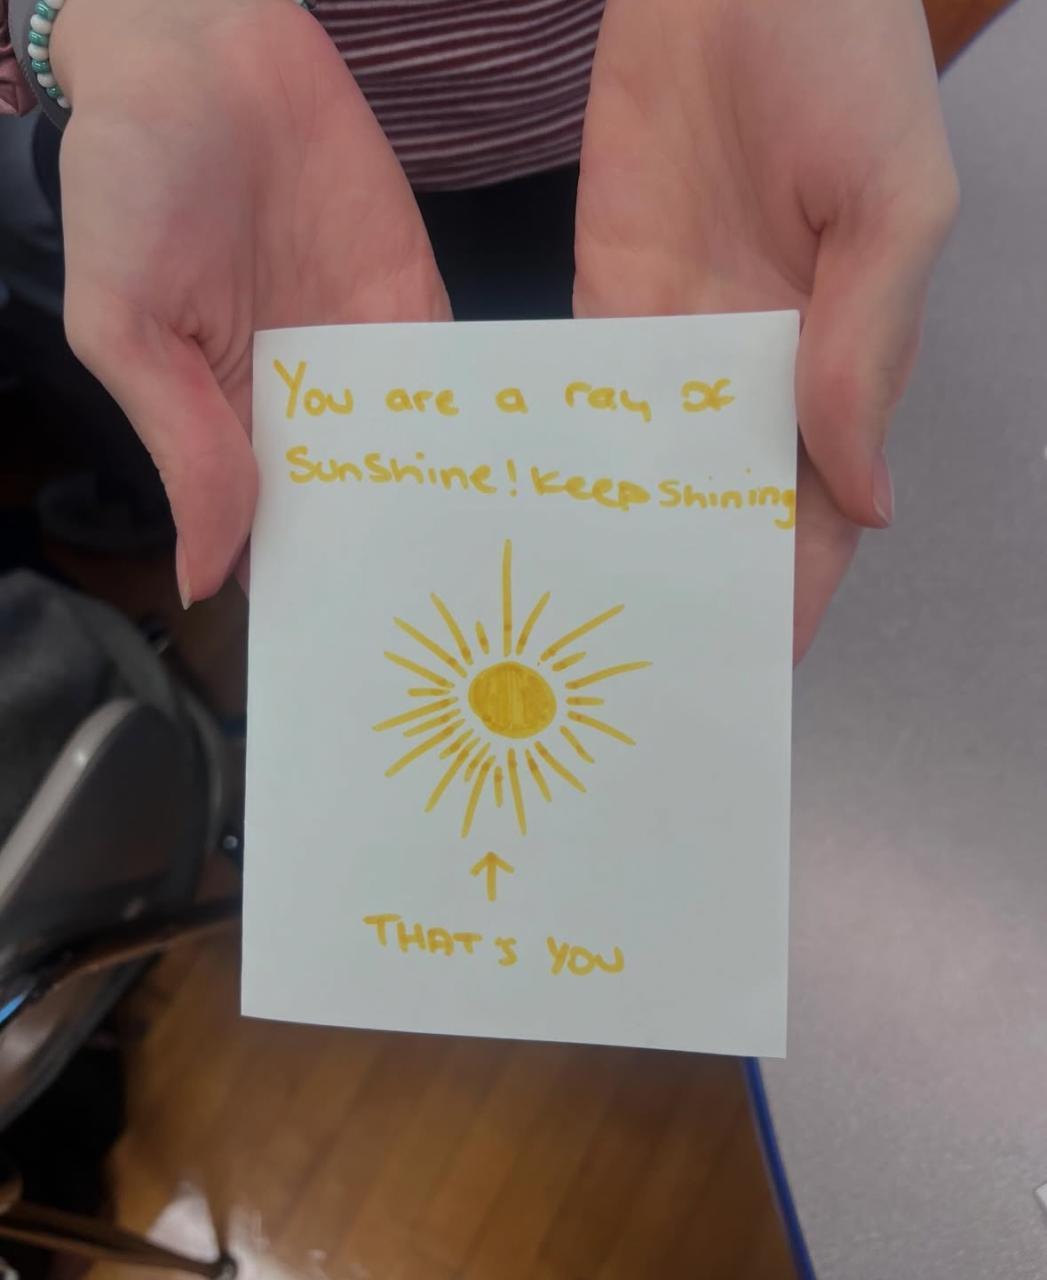 You are a ray of
Sunshine! Keep Shining
THAT'S YOU